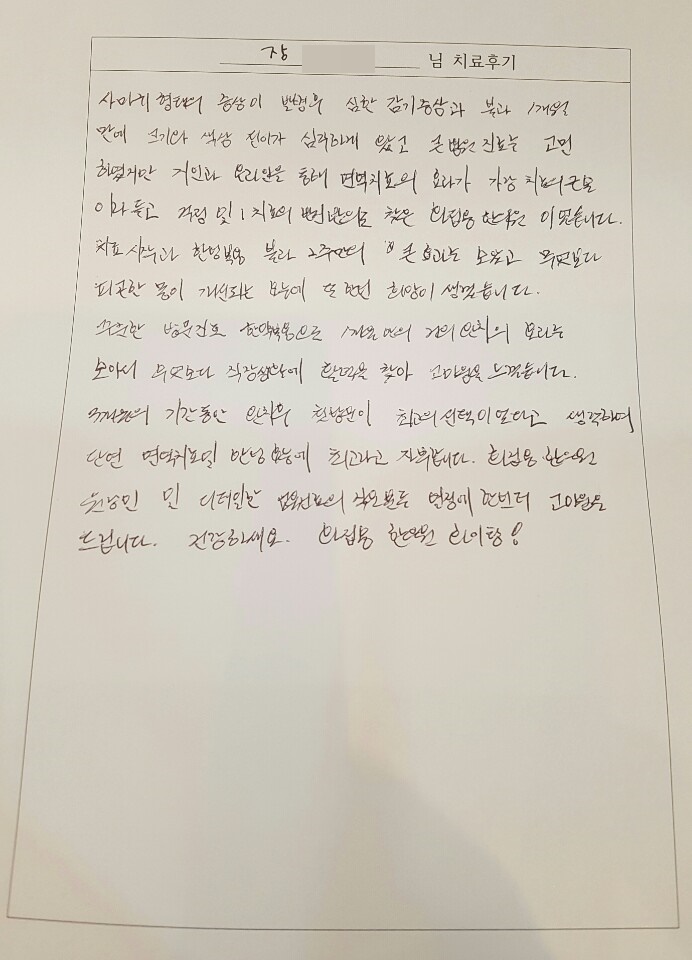 장 님 치료후기
사마귀 형태의 증상이 발병후 심한 감기증상과 불과 1개월
만에 크기와 색상 전이가 심각하게 왔고 큰 병원 진료는 고민
하였지만 지인과 온라인을 통해 면역치료의 효과가 가장 치료의
이라 듣고 걱정 및 치료의 찾은 한의원 이었습니다.
치료 시작과 한방복용 불과 2주만의 큰 효과를 보았고 무엇보다
피곤한 몸이 개선되는 모습에 또 한번 희망이 생겼습니다.
꾸준한 방문진료 한약복용으로 1개월 만의 거의 완치의 효과를
보아서 무엇보다 직장생활에 활력을 찾아 고마움을 느꼈습니다.
3개월의 기간동안 완치후 첫방문이 최고의 선택이었다고 생각하며
단연 면역치료일 만큼 효능에 최고라고 자부합니다. 한의원
원장님 및 디테일한 의 직원분들 열정에 한번더 고마움을
드립니다. 건강하세요. 한의원 화이팅!